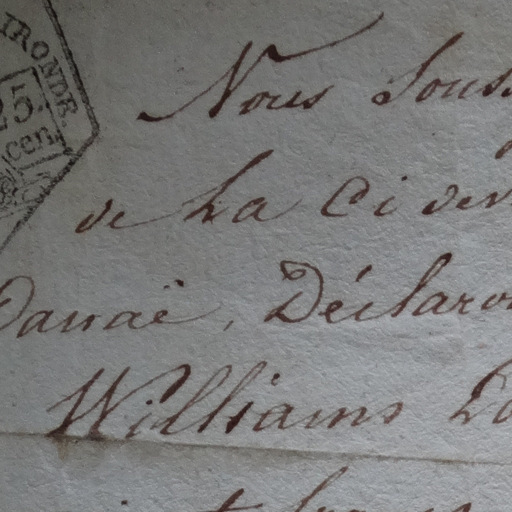 IRONDE.
25
cen
Nous Sous
de La Ci de
Danaë, Déclaro
Williams